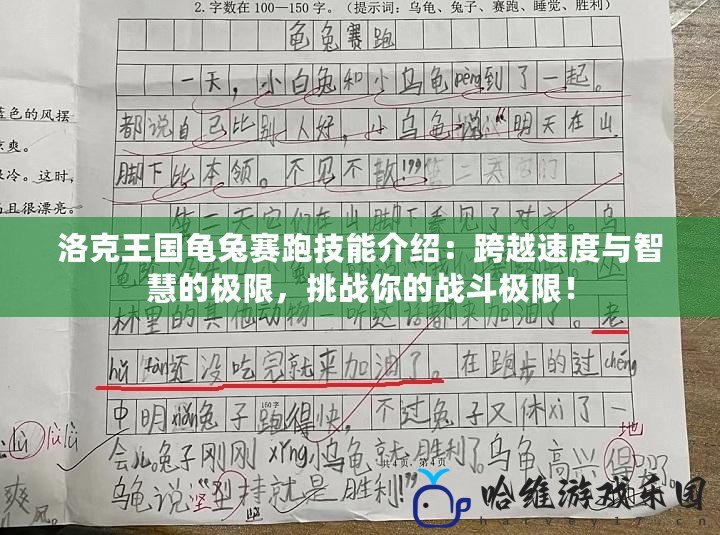 2.字数在 100—150 字。（提示词：乌龟、兔子、赛跑、睡觉、胜利）
龟兔赛跑
一天，小白兔和小乌龟pèng到了一起。
都说自己比别人好，小乌龟说：“明天在山
脚下比本领。不见不散!
蓝色的风摆
凉爽。
冷。这时，
且很漂亮。
第二天它们在山脚下看见了对方。乌
洛克王国龟兔赛跑技能介绍：跨越速度与智
慧的极限，挑战你的战斗极限！
林里的其他动物一听这话都来加油了。老
hǔ fàn还没吃完就来加油了。在跑步的过chéng
中明xiǎn兔子跑得快，不过兔子又休xi了一
150字
会儿。兔子刚刚xǐng，小乌龟就胜利了。乌龟高兴得
地
共4页，第4页
乌龟说“坚持就是胜利!”
坚
lù lù lù
爽
风。
哈维游戏乐园
harvey17.cn